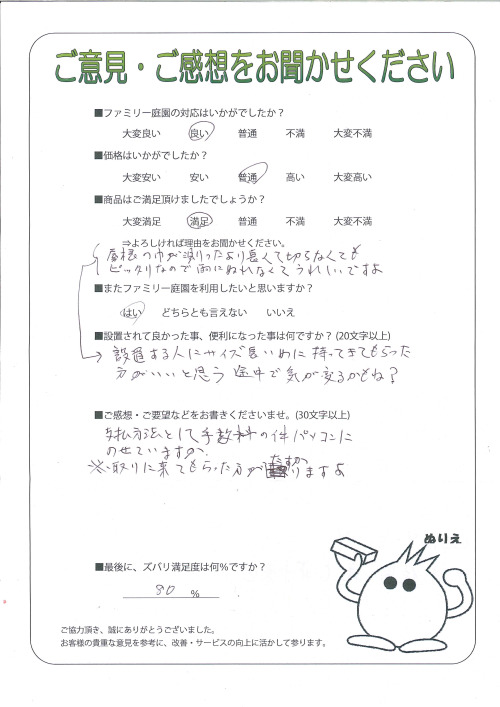 ご意見・ご感想をお聞かせください
■ファミリー庭園の対応はいかがでしたか？
大変良い 良い 普通 不満 大変不満
■価格はいかがでしたか？
大変安い 安い 普通 高い 大変高い
■商品はご満足頂けましたでしょうか？
大変満足 満足 普通 不満 大変不満
⇒よろしければ理由をお聞かせください。
屋根の巾が減りったより長くて切らなくても
ピッタリなので雨にぬれなくてうれしいですよ
■またファミリー庭園を利用したいと思いますか？
はい どちらとも言えない いいえ
■設置されて良かった事、便利になった事は何ですか？(20文字以上)
設置する人にサイズ長いめに持ってきてもらった
方がいいと思う 途中で気が変るかもね？
■ご感想・ご要望などをお書きくださいませ。(30文字以上)
支払方法として手数料の件パソコンに
のせていますか、
※取りに来てもらった方が たすかりますよ
ぬりえ
■最後に、ズバリ満足度は何％ですか？
80 ％
ご協力頂き、誠にありがとうございました。
お客様の貴重な意見を参考に、改善・サービスの向上に活かして参ります。